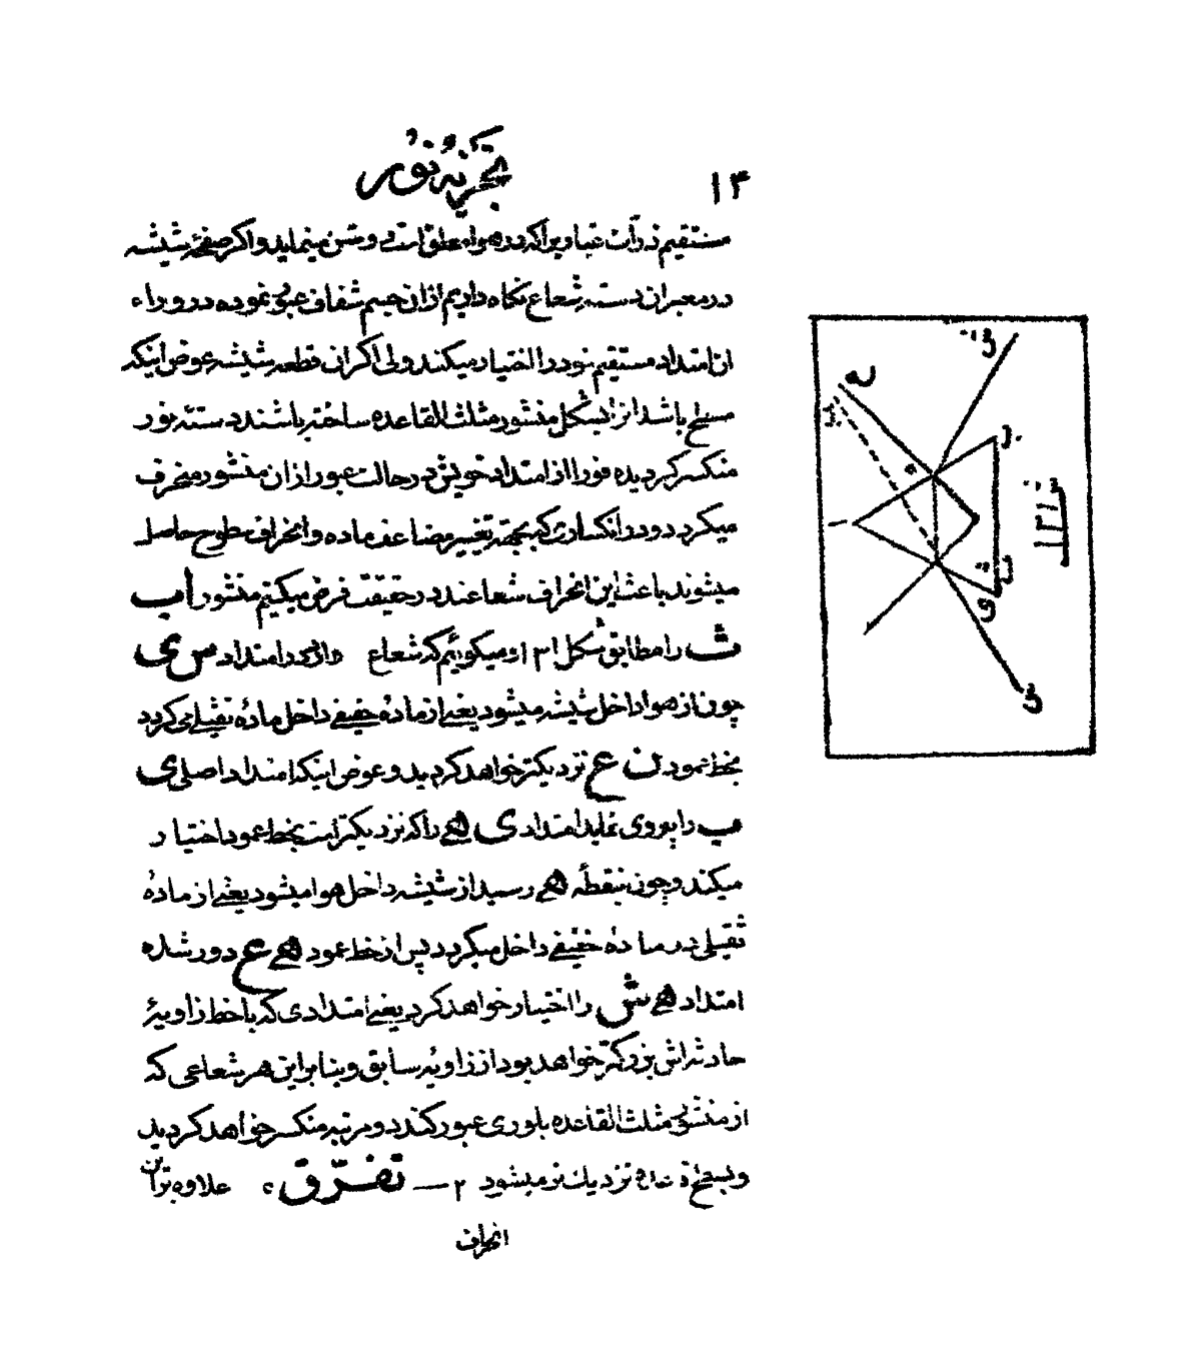 ۱۴
تجزیه نور
مستقیم ذرات غباریرا که در هوا معلق است روشن مینماید و اگر صفحهٔ شیشه
در معبر ان دسته شعاع نگاه داریم از ان جسم شفاف عبور نموده در وراء
ان امتداد مستقیم خود را اختیار میکند ولی اگر ان قطعه شیشه عوض اینکه
مسطح باشد انرا بشکل منشور مثلث القاعده ساخته باشند دستهٔ نور
منکسر گردیده فورا از امتداد خویش در حالت عبور از ان منشور منحرف
میگردد و دو انکساری که بجهته تغییر مضاعف ماده و انحراف سطوح حاصل
میشوند باعث این انحراف شعاعند در حقیقت فرض میکنیم منشور اب
ث را مطابق شکل ۱۳ و میگوئیم که شعاع وارد در امتداد س ی
چون از هوا داخل شیشه میشود یعنی از مادهٔ خفیفی داخل مادهٔ ثقیلی میگردد
بخط عمود ن ع نزدیکتر خواهد گردید و عوض اینکه امتداد اصلی ی
ب را پیروی نماید امتداد ی ه را که نزدیکتر است بخط عمود اختیار
میکند و چون بنقطهٔ ه رسید از شیشه داخل هوا میشود یعنی از مادهٔ
ثقیلی در مادهٔ خفیفی داخل میگردد پس از خط عمود ه ع دور شده
امتداد ه ش را اختیار خواهد کرد یعنی امتدادی که با خط زاویهٔ
حادثه اش بزرگتر خواهد بود از زاویهٔ سابق و بنابراین هر شعاعی که
از منشور مثلث القاعده بلوری عبور کند دو مرتبه منکسر خواهد گردید
و بسطح نزدیک تر میشود ۲ — تفرّق علاوه بر این
انحراف